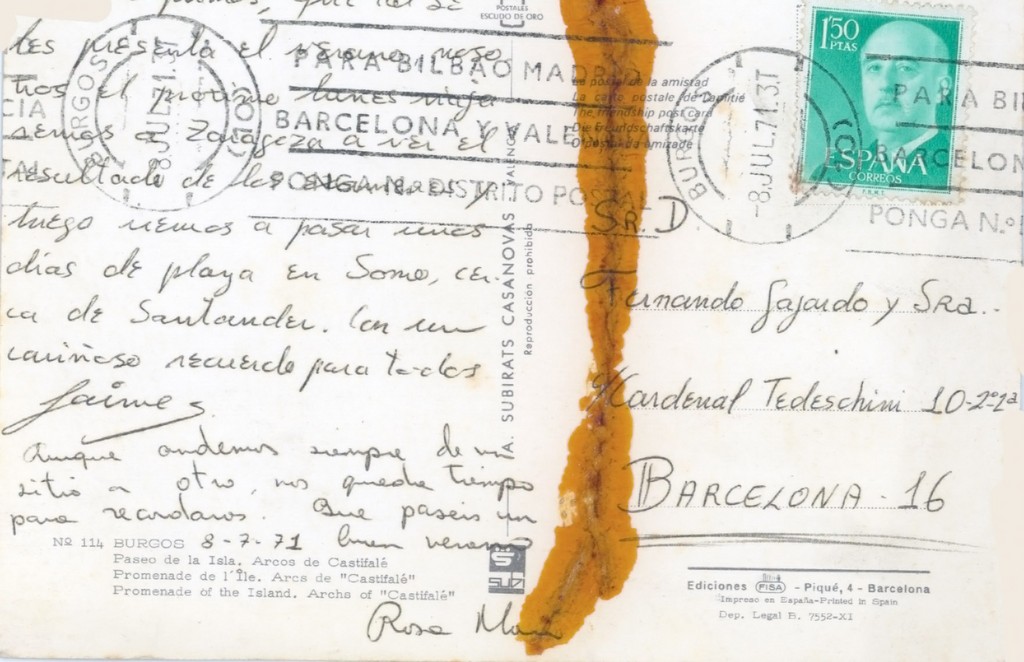 que tal se
les presenta el verano, noso
tros el proximo lunes viaja
remos a Zaragoza a ver el
resultado de los examenes y
luego iremos a pasar unos
dias de playa en Somo, cer-
ca de Santander. Con un
cariñoso recuerdo para todos
Jaime
Aunque andemos siempre de un
sitio a otro, nos queda tiempo
para recordaros. Que paseis un
buen verano
Rosa Mari
Nº 114 BURGOS 8-7-71
Paseo de la Isla. Arcos de Castifalé
Promenade de l'Île. Arcs de "Castifalé"
Promenade of the Island. Archs of "Castifalé"
POSTALES
ESCUDO DE ORO
A. SUBIRATS CASANOVAS
Reproducción prohibida
BURGOS
8 JUL 71
PARA BILBAO MADRID
BARCELONA Y VALENCIA
PONGA N.º DISTRITO POSTAL
La postal de la amistad
La carte postale de l'amitié
The friendship post card
Die Freundschaftskarte
O postal da amizade
BURGOS
-8.JUL.71.3T
PARA BI
BARCELON
PONGA N.º
1'50
PTAS
ESPAÑA
CORREOS
Sr. D.
Fernando Gajardo y Sra.
Cardenal Tedeschini 10-2º1ª
BARCELONA-16
Ediciones FISA - Piqué, 4 - Barcelona
Impreso en España-Printed in Spain
Dep. Legal B. 7552-XI